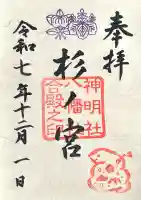 奉拝
杉八宮
神明社
八幡
合殿之印
令和七年十二月一日